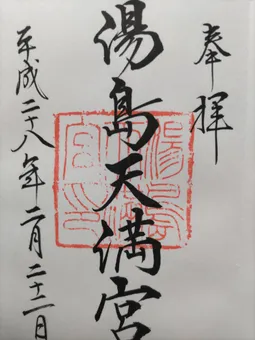 奉拝
湯島天満宮
平成二十八年二月二十二日